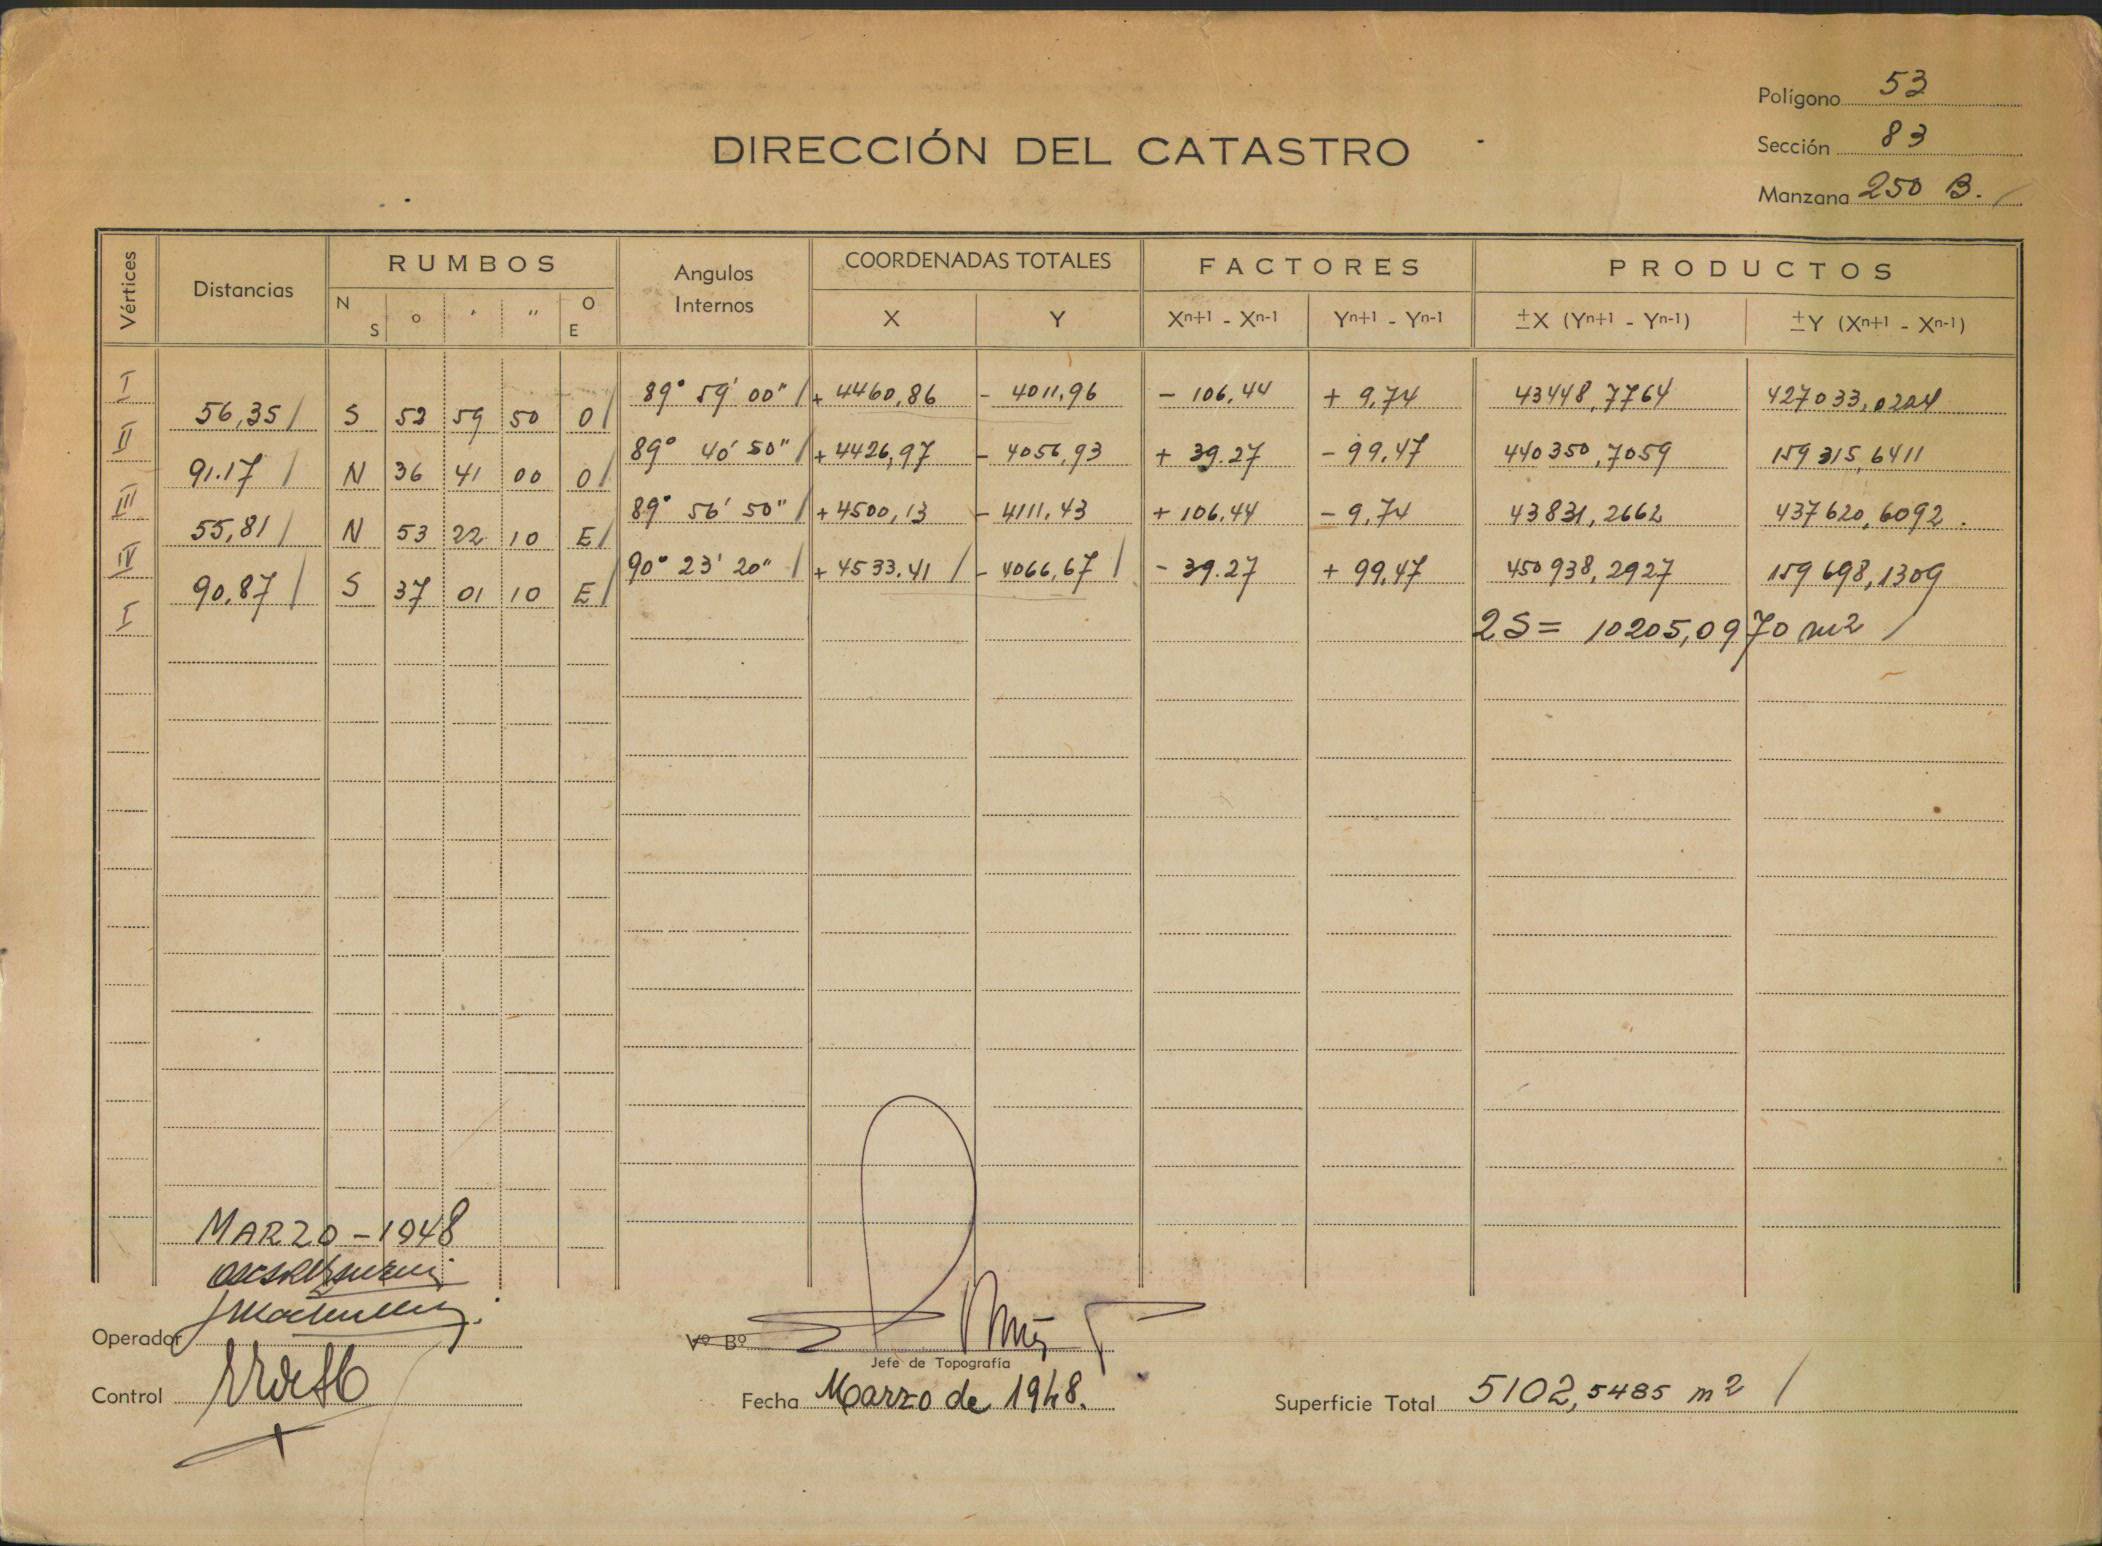 Polígono 53
DIRECCIÓN DEL CATASTRO
Sección 83
Manzana 250 B.
Vértices Distancias RUMBOS Angulos Internos COORDENADAS TOTALES FACTORES PRODUCTOS
N S ° ' " O E X Y Xn+1 - Xn-1 Yn+1 - Yn-1 ±X (Yn+1 - Yn-1) ±Y (Xn+1 - Xn-1)
I 89° 59' 00" + 4460,86 - 4011,96 - 106,44 + 9,74 43448,7764 427033,0224
56,35 S 52 59 50 O
II 89° 40' 50" + 4426,97 - 4056,93 + 39.27 - 99,47 440350,7059 159315,6411
91.17 N 36 41 00 O
III 89° 56' 50" + 4500,13 - 4111,43 + 106,44 - 9,74 43831,2662 437620,6092.
55,81 N 53 22 10 E
IV 90° 23' 20" + 4533,41 - 4066,67 - 39.27 + 99,47 450938,2927 159698,1309
90,87 S 37 01 10 E
I 2S = 10205,0970 m2
MARZO - 1948
Operador
Vº Bº
Jefe de Topografía
Control
Fecha Marzo de 1948.
Superficie Total 5102,5485 m2